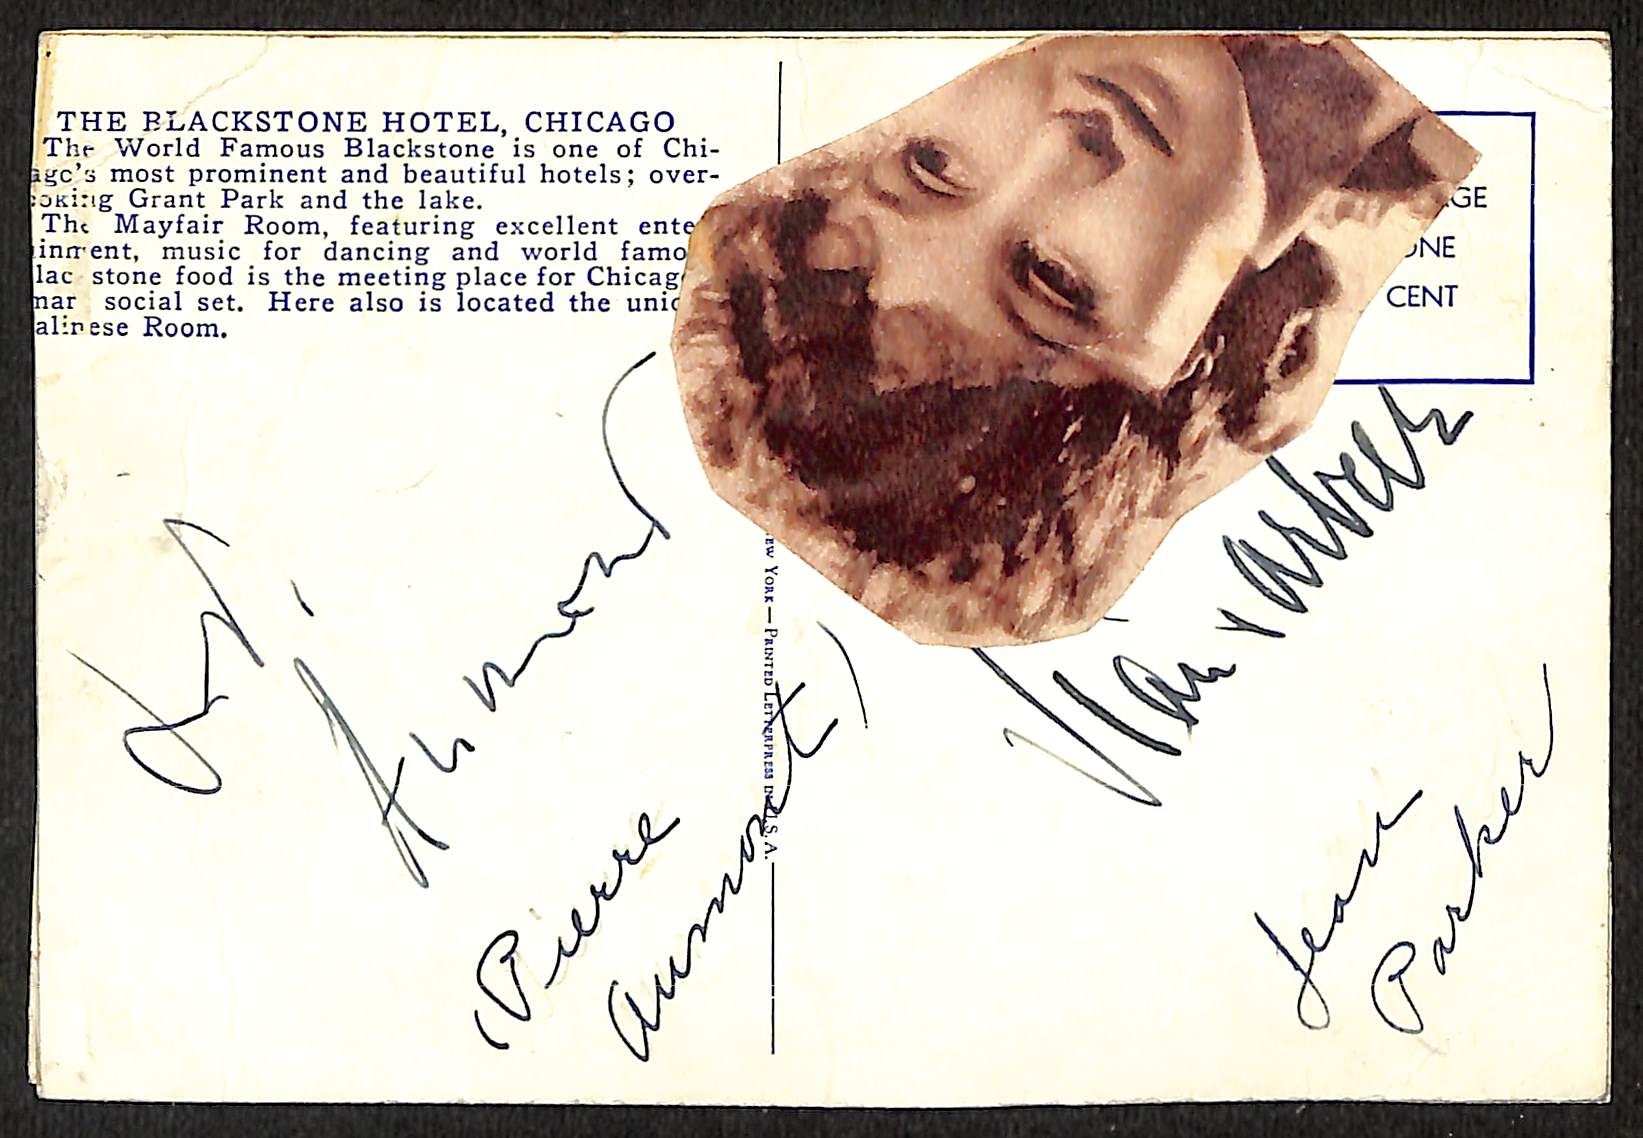 THE BLACKSTONE HOTEL, CHICAGO
The World Famous Blackstone is one of Chi-
ago's most prominent and beautiful hotels; over-
ooking Grant Park and the lake.
The Mayfair Room, featuring excellent ente
ainment, music for dancing and world famo
lac stone food is the meeting place for Chicag
mar social set. Here also is located the uniq
alinese Room.
GE
ONE
CENT
EW YORK — PRINTED LETTERPRESS IN U.S.A.
Aumont
(Pierre
aumont)
Jean
Parker